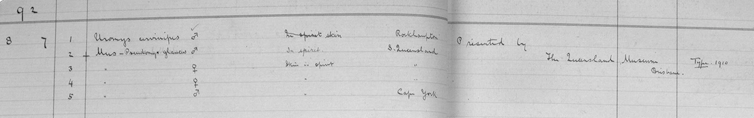 92
8 7 1 Uromys cervinipes ♂ In spirit skin Rockhampton Presented by
2 Mus - ♂ In spirit S. Queensland The Queensland Museum Type 1910
3 ♀ Skin in spirit " Brisbane.
4 " ♀ " "
5 " ♂ " Cape York